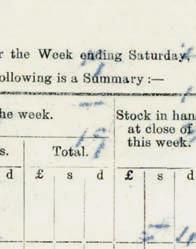 r the Week ending Saturday,
ollowing is a Summary :—
he week.
Stock in han
at close of
this week.
s. Total.
d £ s d £ s d